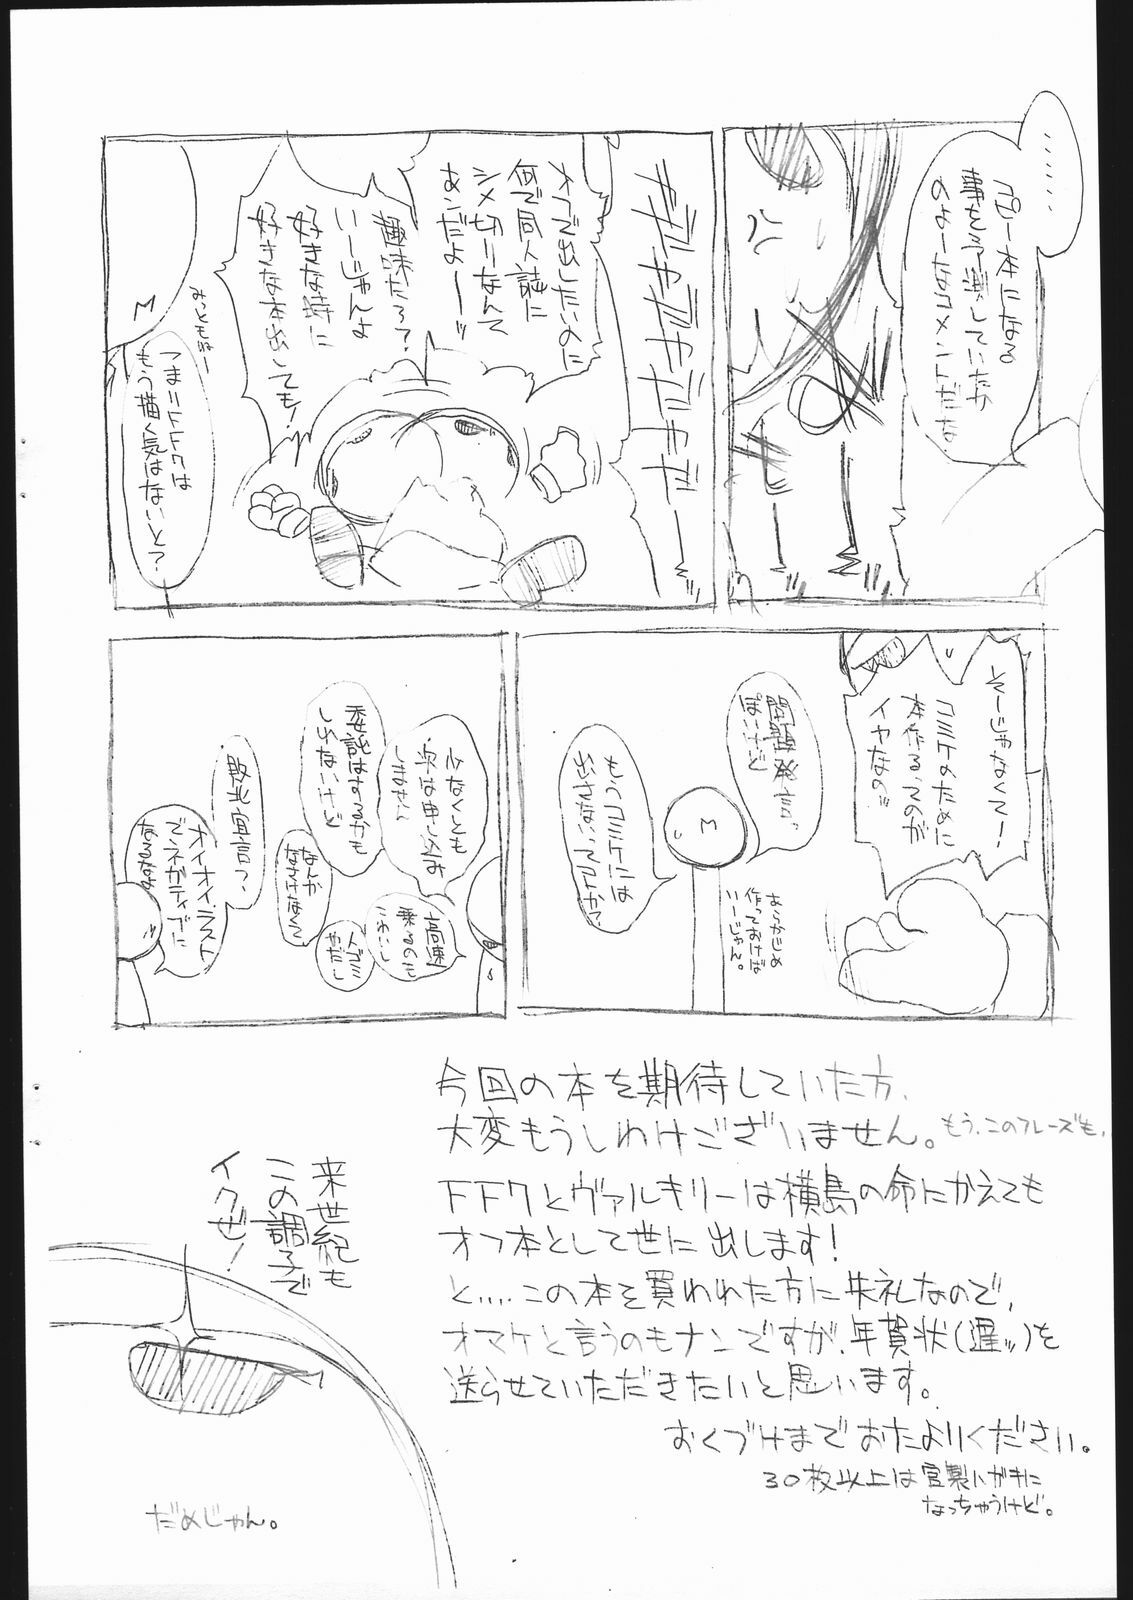 ……
コピー本になる
事を予測していたか
のよーなコメントだな
ヤダヤダヤダヤダヤー
オフで出したいのに
何で同人誌に
シメ切りなんて
あンだよーーッ
趣味だろ?
いーじゃんよ
好きな時に
好きな本出しても!
みっともねー
つまりFFクは
もう描く気はないと?
そーじゃなくてー
コミケのために
本作る、ってのが
イヤなの!!
問題発言、
ぽいけど
もうコミケには
出さない、ってコトか?
あらかじめ
作っておけば
いーじゃん。
少なくとも
次は申し込み
しません
高速
乗るのも
こわいし
人ゴミ
やだし
委託はするかも
しれないけど
なんか
なさけなくて
敗北宣言?
オイオイ、ラスト
でネガティブに
なるなよ
今回の本を期待していた方、
大変もうしわけございません。もう、このフレーズも、
FFクとヴァルキリーは横島の命にかえても
オフ本として世に出します!
と....この本を買われた方に失礼なので、
オマケと言うのもナンですが、年賀状(遅ッ)を
送らせていただきたいと思います。
おくづけまでおたよりください。
30枚以上は官製ハガキに
なっちゃうけど。
来世紀も
この調子で
イクぜ!
だめじゃん。